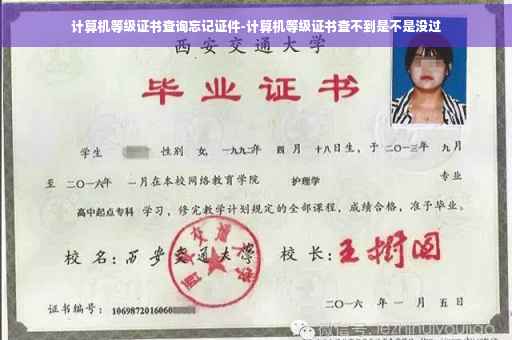 计算机等级证书查询忘记证件-计算机等级证书查不到是不是没过
西安交通大学
毕业证书
学生 性别 女, 一九九二年 四月 十八日生, 于 二〇一三年 九月
至 二〇一六年 一月在本校网络教育学院 护理学 专业
高中起点专科 学习, 修完教学计划规定的全部课程, 成绩合格, 准予毕业。
校名: 西安交通大学 校长: 王树国
证书编号: 1069872016060
二〇一六年 一月 五日
微信号: iezhinuiyoujiao